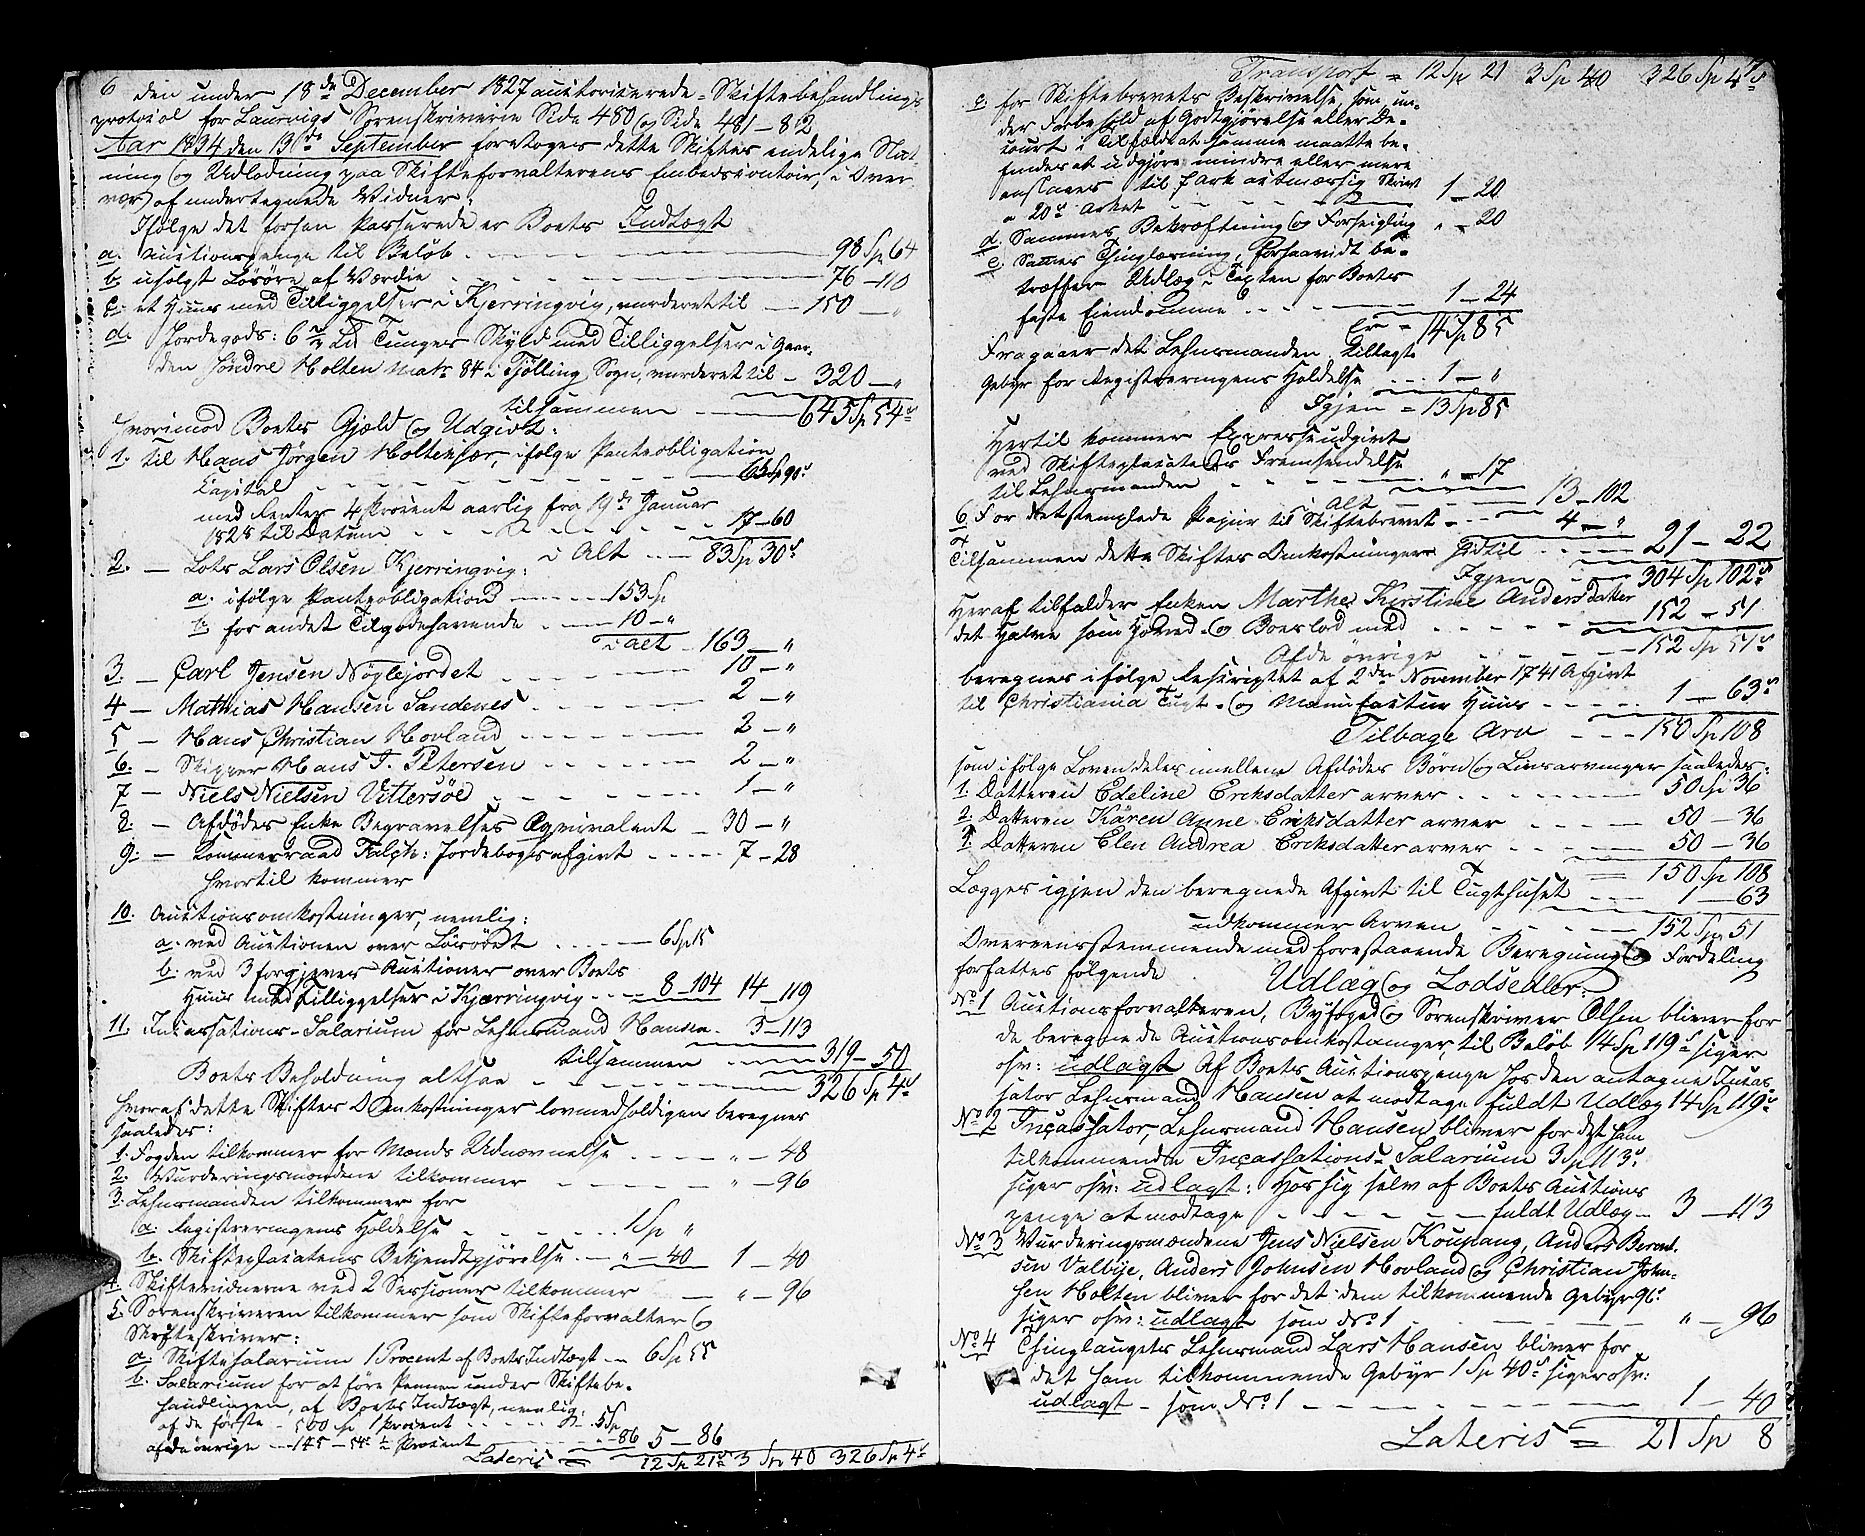 6 den under 18de December 1827 auctoriserede Skiftebehandlings
protocol for Laurvigs Sorenskriverie Side 480 og Side 481-82
Aar 1834 den 13de September foretoges dette Skiftes endelige Slut
ning og Udlodning paa Skifteforvalterens Embedscontoir, i Over
vær af undertegnede Vidner.
Ifølge det forhen passerede er Boets Indtægt
a. Auctionspenge til Beløb 98 Sp 64
b. usolgt Løsøre af Værdie 76 - 110
c. et Huus med Tilliggelser i Kjerringvig, vurderet til 150 - "
d. Jordegods: 6 Tunges Skyld med Tilliggelser i Gaar-
den Søndre Holten Matr 84 i Tjølling Sogn, vurderet til - 320 - "
tilsammen 645 Sp 54 s
Hvorimod Boets Gjæld og Udgivt:
1. til Hans Jørgen Holtekjær, ifølge Panteobligation
Capital 65 Sp 90 s
med Renter 4 procent aarlig fra 19de Januar
1828 til Datum 17 - 60
i Alt 83 Sp 30 s
2. - Lots Lars Olsen Kjerringvig:
a. ifølge Panteobligation 153 Sp
b. for andet Tilgodehavende 10 - "
i alt 163 - "
3. - Carl Jensen Nøglejordet 10 - "
4 - Mathias Hansen Sandenes 2 - "
5 - Hans Christian Hovland 2 - "
6. - Skipper Hans T. Petersen 2 - "
7 - Niels Nielsen Vittersøe 1 - "
8. - Afdødes Enke Begravelses Eqvivalent - 30 - "
9. - Commerraad Falch: Jordebogsafgivt 7 - 28
hvortil kommer
10. Auctionsomkostninger, nemlig:
a. ved Auctionen over Løsøret 6 Sp 15
b. ved 3 forgjeves Auctioner over Boets
Huus med Tilliggelser i Kjærringvig 8 - 104 14 - 119
11. Incassations-Salarium for Lehnsmand Hansen 3 - 113
tilsammen 319 - 50
Boets Beholdning altsaa 326 Sp 4 s
Hvoraf dette Skiftes Omkostninger lovmedholdigen beregnes
saaledes:
1. Fogden tilkommer for Mænds Udnævnelse " - 48
2. Vurderingsmændene tilkommer " - 96
3. Lehnsmanden tilkommer for
a. Registreringens Holdelse 1 Sp "
b. Skifteplacatens Bekjendtgjørelse " - 40 1 - 40
4. Skiftevidnerne ved 2 Sessioner tilkommer " - 96
5. Sorenskriveren tilkommer som Skifteforvalter og
Skifteskriver:
a. Skiftesalarium 1 Procent af Boets Indtægt 6 Sp 55
b. Salarium for at føre Pennen under Skiftebe-
handlingen, af Boets Indtægt, nemlig:
af de første 500 Sp 1 procent 5 Sp
af de øvrige 145 - 54 s ½ Procent - 86 5 - 86
Lateris = 12 Sp 21 s 3 Sp 40 326 Sp 4 s
Transport = 12 Sp 21 3 Sp 40 326 Sp 4 s
c. for Skiftebrevets Beskrivelse, som un-
der Forbehold af Godtgjørelse eller De-
court i Tilfælde at samme maatte be-
findes at udgjøre mindre eller mere
anslaaes til 7 ark
a 20 s Arket 1 - 20
d. Sammes Bekræftning og Forseigling " - 20
e. Sammes Thinglæsning, forsaavidt be-
træffer Udlæg i Texten for Boets
faste Eiendomme 1 - 24
Er = 14 Sp 85
Fragaaer det Lehnsmanden tillagte
Gebyr for Registreringens Holdelse 1 - "
Igjen = 13 Sp 85
Hertil kommer Expresseudgivt
ved Skifteplacatens Fremsendelse
til Lehnsmanden " - 17
i Alt 13 - 102
6. For det stemplede Papiir til Skiftebrevet 4 - "
Tilsammen dette Skiftes Omkostninger Indtil 21 - 22
Igjen 304 Sp 102 s
Heraf tilfalder Enken Marthe Kirstine Andersdatter
det Halve som Hoved- og Boeslod med 152 - 51
Af de øvrige 152 Sp 51 s
beregnes ifølge Rescriptet af 2den November 1741 Afgivt
til Christiania Tugt- og Manufactur Huus 1 - 63 s
Tilbage Arv 150 Sp 108
som ifølge Loven deles imellem Afdødes Børn og Livsarvinger saaledes:
1. Datteren Edeline Eriksdatter arver 50 Sp 36
2. Datteren Karen Anne Eriksdatter arver 50 - 36
3. Datteren Elen Andrea Eriksdatter arver 50 - 36
= 150 Sp 108
Lægges igjen den beregnede Afgivt til Tugthuset 1 - 63
udkommer Arven 152 Sp 51
Overeensstemmende med forestaaende Beregning og Fordeling
forfattes følgende Udlæg og Lodsedler.
No 1 Auctionsforvalteren, Byfoged og Sorenskriver Olsen bliver for
de beregnede Auctionsomkostninger, til Beløb 14 Sp 119 s siger
osv: udlagt Af Boets Auctionspenge hos den antagne Incas-
sator Lehnsmand Hansen at modtage fuldt Udlæg 14 Sp 119 s
No 2 Incassator, Lehnsmand Hansen bliver for det ham
tilkommende Incassations-Salarium 3 Sp 113 s
siger osv: udlagt: Hos sig selv af Boets Auctions
penge at modtage fuldt Udlæg 3 - 113
No 3 Vurderingsmændene Jens Nielsen Koupang, Anders Bernt-
sen Valbye, Anders Johnsen Hovland og Christian John-
sen Holten bliver for det dem tilkommende Gebyr 96 s
siger osv: udlagt som No 1 " - 96
No 4 Thinglaugets Lehnsmand Lars Hansen bliver for
det ham tilkommende Gebyr 1 Sp 40 s siger osv:
udlagt - som No 1 1 - 40
Lateris = 21 Sp 8